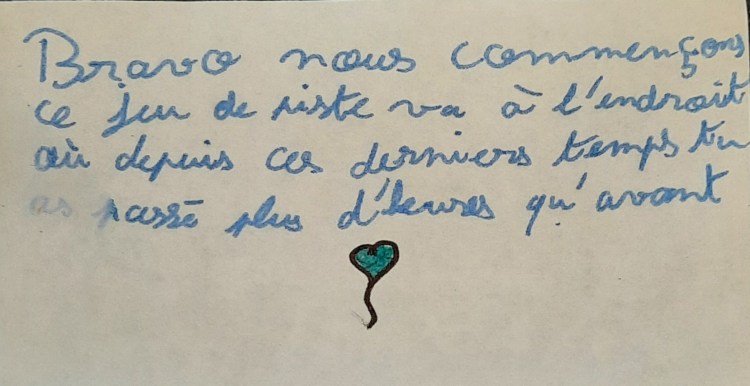 Bravo nous commençons
ce jeu de piste va à l'endroit
où depuis ces derniers temps tu
as passé plus d'heures qu'avant